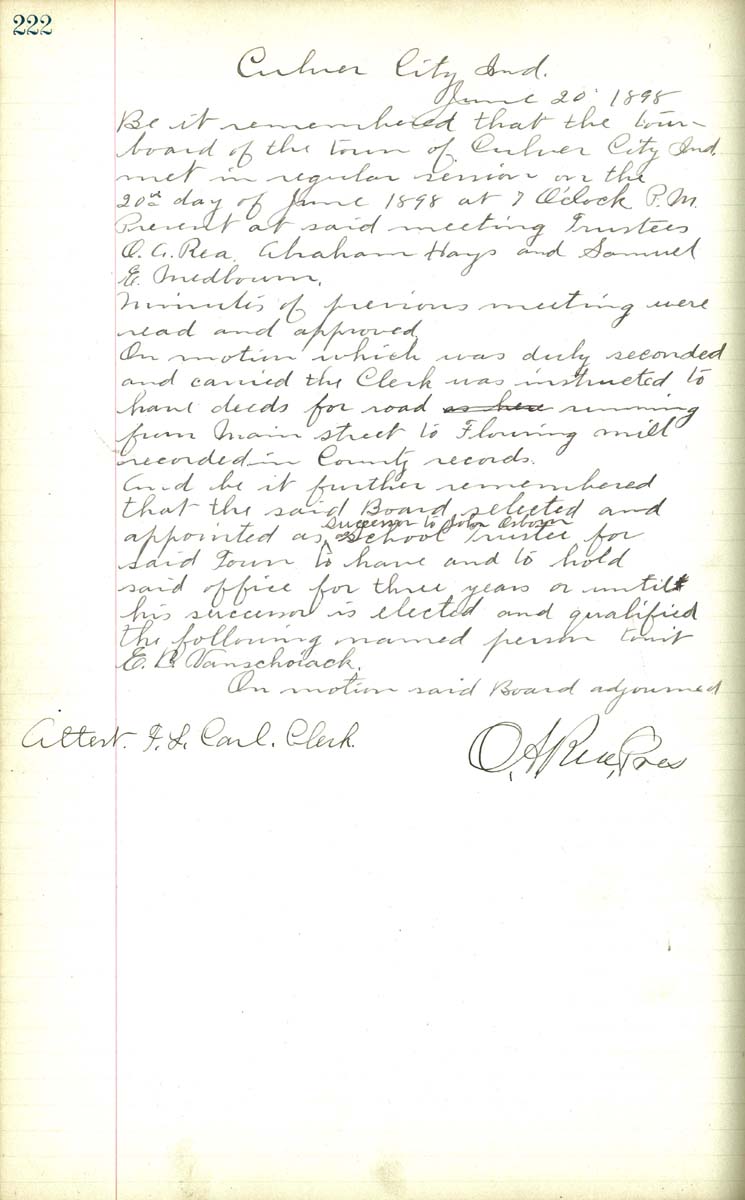 222
Culver City Ind.
June 20 1898
Be it remembered that the town
board of the town of Culver City Ind.
met in regular session on the
20th day of June 1898 at 7 O'clock P.M.
Present at said meeting Trustees
O. A. Rea, Abraham Hays and Samuel
E. Medbourn.
Minutes of previous meeting were
read and approved
On motion which was duly seconded
and carried the Clerk was instructed to
have deeds for road as here running
from Main street to Flouring mill
recorded in County records.
And be it further remembered
that the said Board selected and
successor to John Osborn
appointed as School Trustee for
said Town to have and to hold
said office for three years or until
his successor is elected and qualified
the following named person towit
E. Vanschoiack.
On motion said Board adjourned
Attest. F. L. Carl. Clerk.
O. A. Rea, Pres